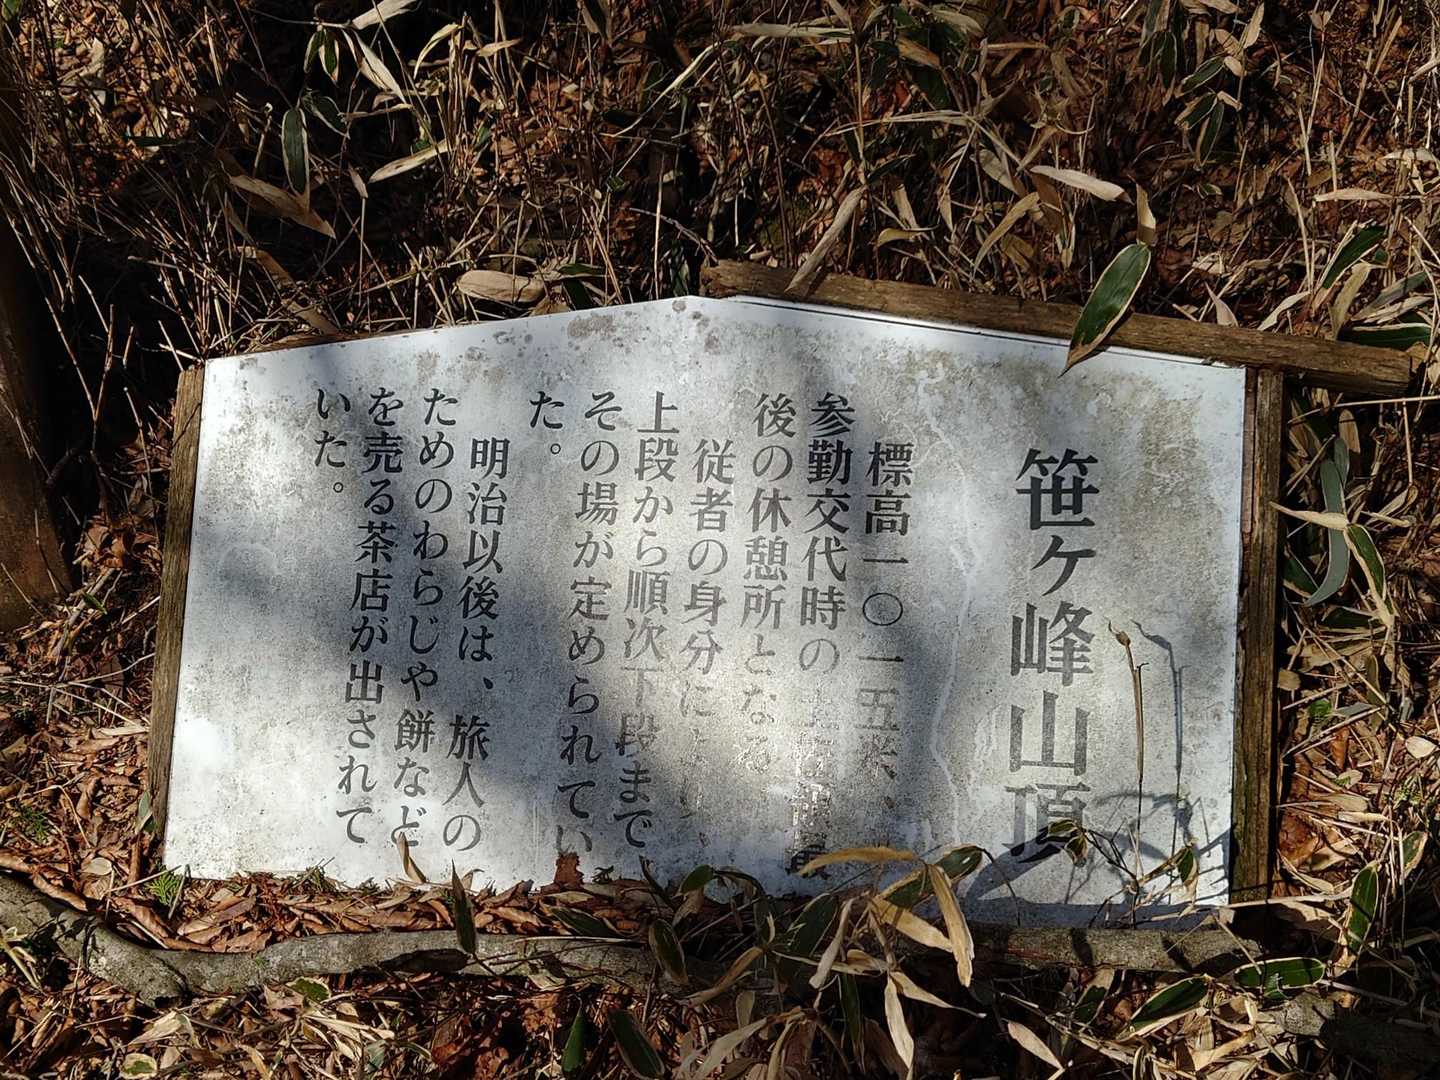 笹ヶ峰山頂
標高一〇一五米、
参勤交代時の
後の休憩所となる
従者の身分に
上段から順次下段まで
その場が定められてい
た。
明治以後は、旅人の
ためのわらじや餅など
を売る茶店が出されて
いた。